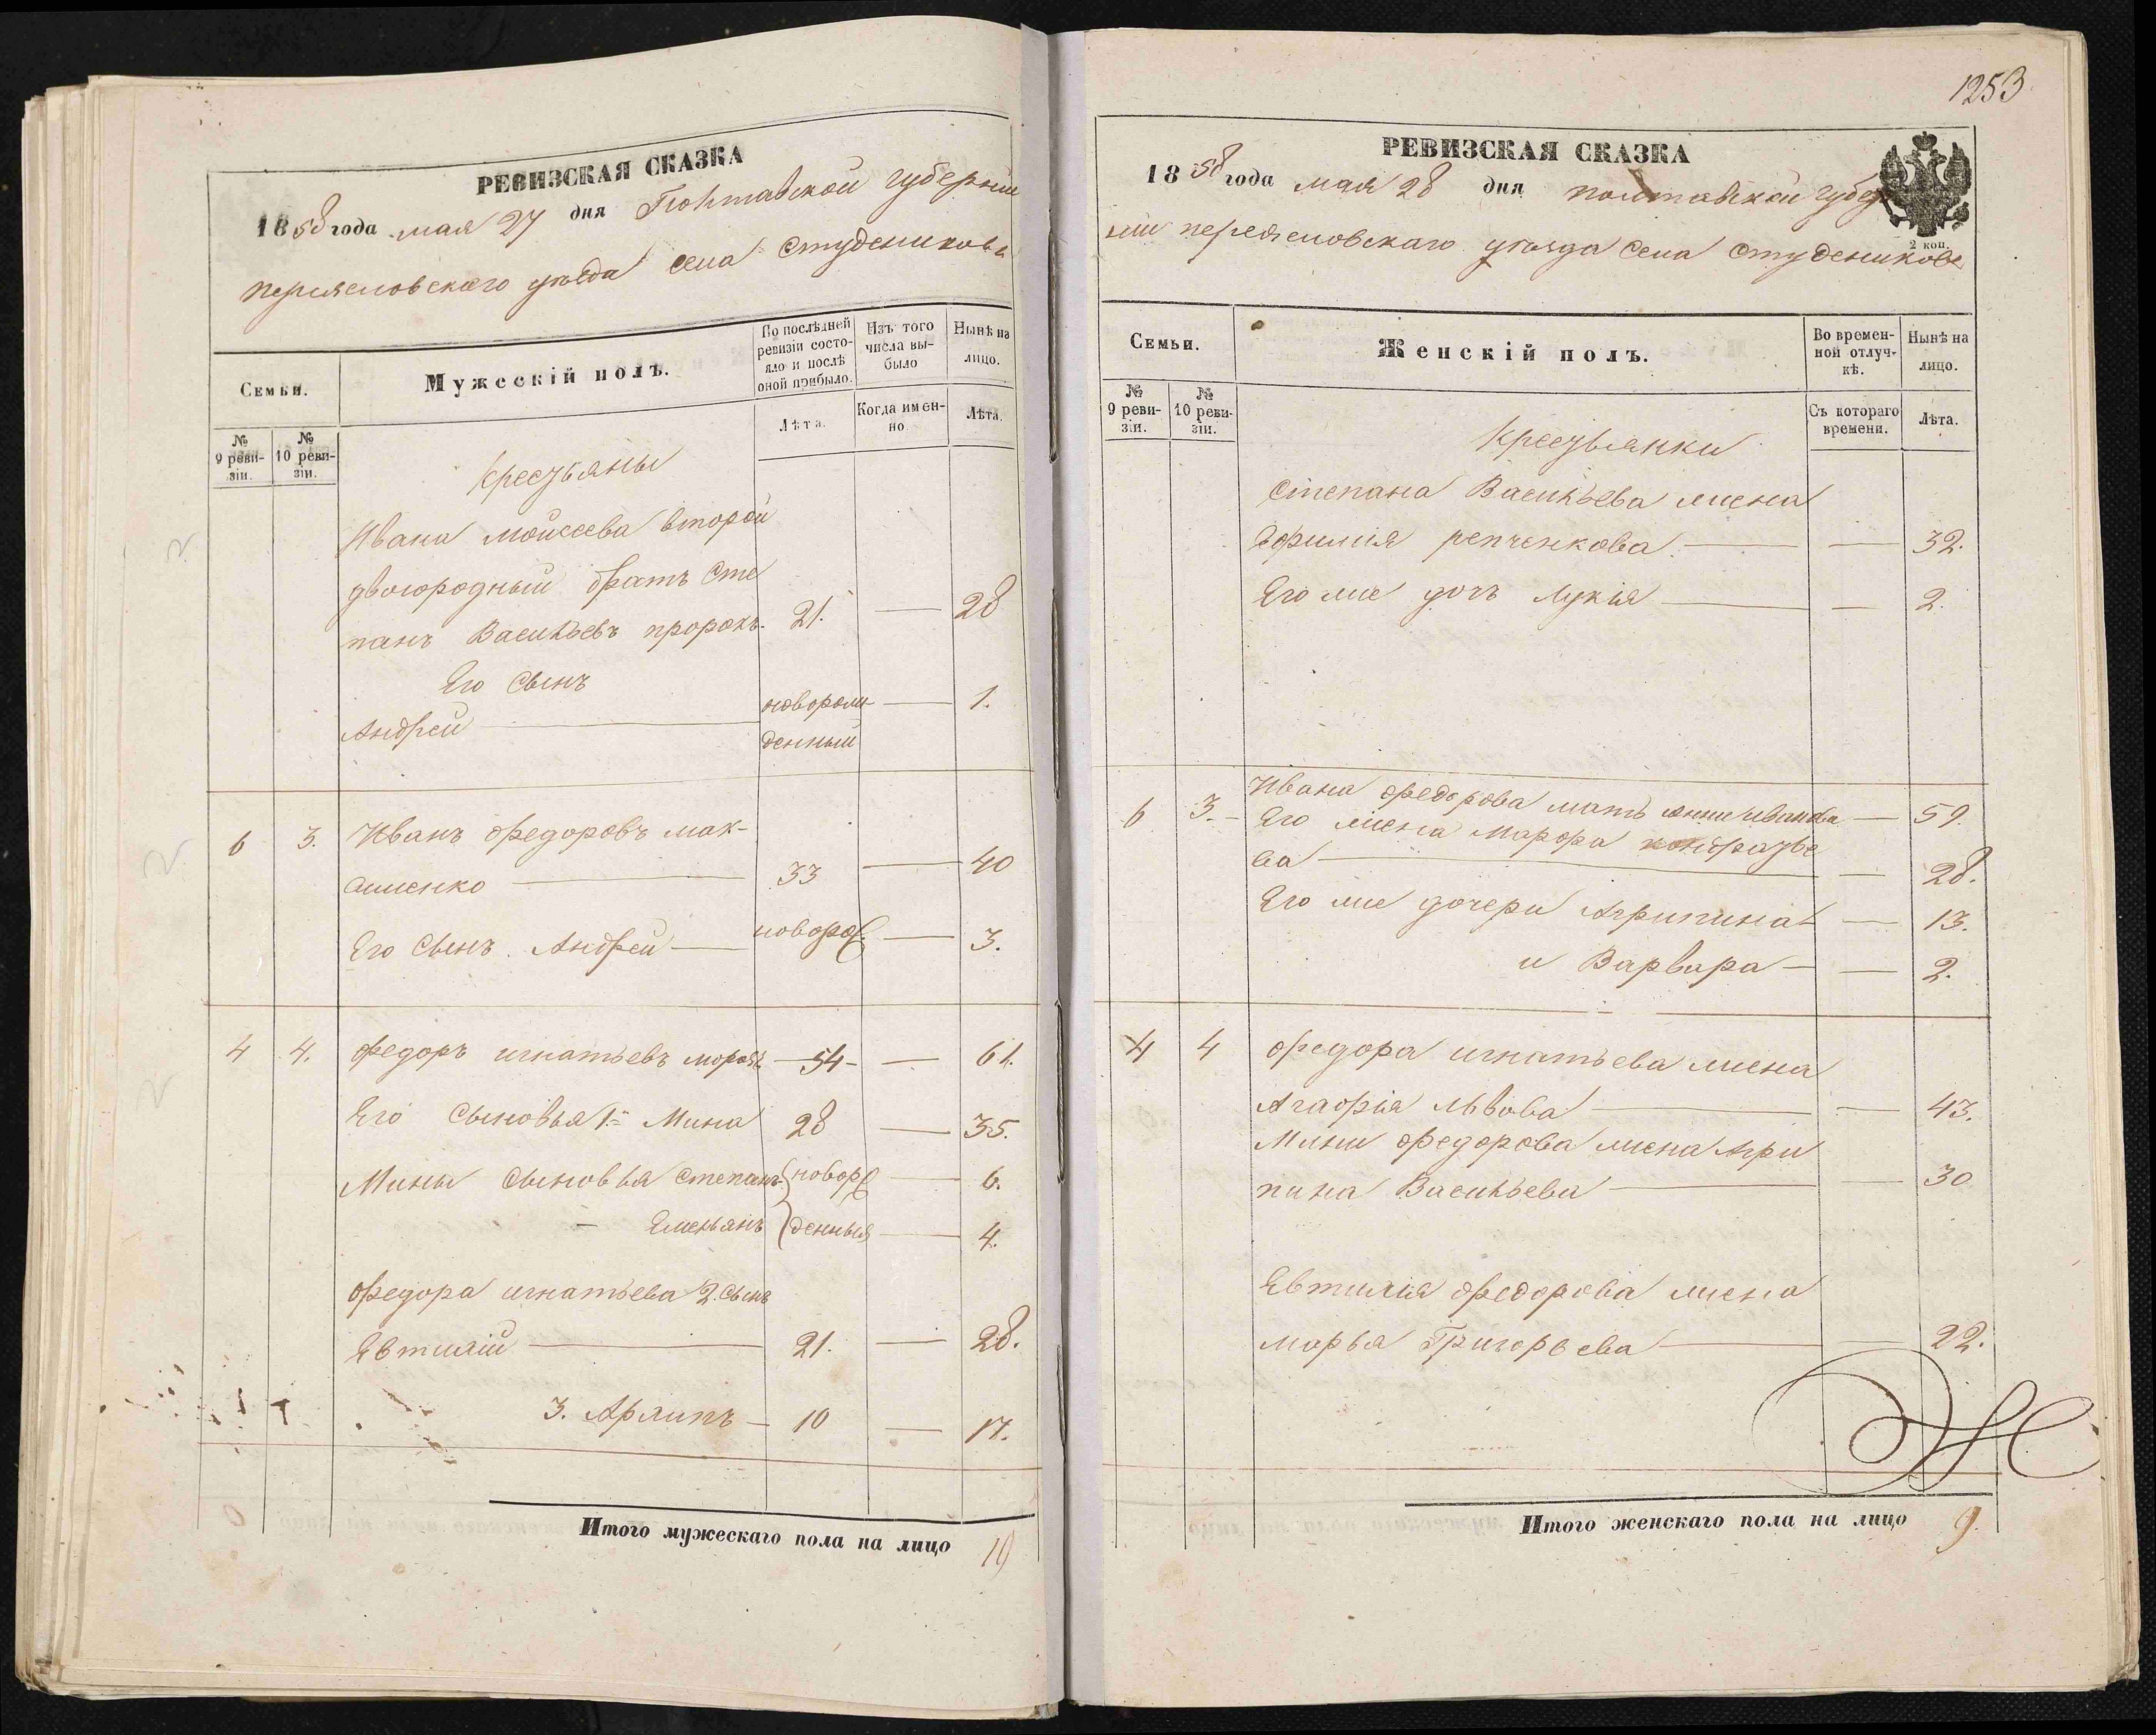 РЕВИЗСКАЯ СКАЗКА
1858 года мая 27 дня Полтавской губернии
переясловского уѣзда села Студеникова
Семьи.
Мужескій полъ.
По послѣдней ревизіи состояло и послѣ оной прибыло.
Изъ того числа выбыло
Нынѣ на лицо.
№ 9 ревизіи.
№ 10 ревизіи.
Лѣта.
Когда именно
Лѣта.
Кресзьяны
Ивана Моисеева второй
двогородный братъ Сте
панъ Васильевъ пророкъ. 21. — 28
Его Сынъ
Андрей — новорож — 1.
денный
6 3. Иванъ Федоровъ мак-
сименко — 33 — 40
Его Сынъ Андрей — новоро — 3.
4 4. Федоръ игнатьевъ морозъ — 54 — — 61.
Его Сыновья 1. Мина 28 — 35.
Мины Сыновья Степанъ новоро — 6.
— Емельянъ денныя — 4.
Федора игнатьева 2. Сынъ
Евтихій — 21. — 28.
3. Архипъ — 10 — 17.
Итого мужескаго пола на лицо 10
1253
РЕВИЗСКАЯ СКАЗКА
1858 года мая 28 дня полтавской губер
нии переясловскаго уѣзда села Студеникове
2 коп.
Семьи.
Женскій полъ.
Во временной отлучкѣ.
Нынѣ на лицо.
№ 9 ревизіи.
№ 10 ревизіи.
Съ котораго времени.
Лѣта.
Кресзьянки
Степана Васильева жена
Ефимія репченкова. — — 32.
Его же дочъ Лукія — — 2.
6 3. Ивана Федорова мать Анна иванова — 59.
Его жена Марфа кондразье
ва — — 28.
Его же дочери Агрипина — — 13.
и Варвара — — 2.
4 4 Федора игнатьева жена
Агафія Львова — — 43.
Мины Федорова жена Агри
пина Васильева — — 30
Евтихія Федорова жена
марья Григорьева — — 22.
Итого женскаго пола на лицо 9.